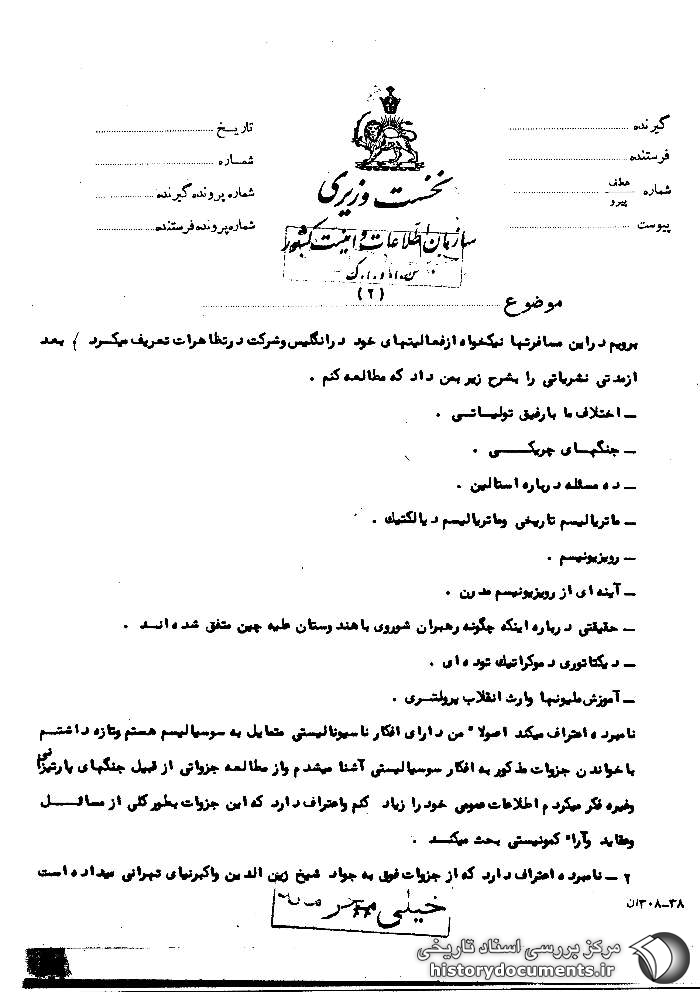 گیرنده
فرستنده
شماره عطف پیرو
پیوست
تاریخ
شماره
شماره پرونده گیرنده
شماره پرونده فرستنده
نخست وزیری
سازمان اطلاعات و امنیت کشور
س.ا.و.ا.ک
(۲)
موضوع
برویم دراین مسافرتها نیکخواه ازفعالیتهای خود درانگلیس وشرکت درتظاهرات تعریف میکرد ) بعد
ازمدتی نشریاتی را بشرح زیر بمن داد که مطالعه کنم .
ـ اختلاف ما بارفیق تولیاتی .
ـ جنگهای چریکی .
ـ ده مسئله درباره استالین .
ـ ماتریالیسم تاریخی وماتریالیسم دیالکتیک .
ـ رویزیونیسم .
ـ آینه ای از رویزیونیسم مدرن .
ـ حقیقتی درباره اینکه چگونه رهبران شوروی باهندوستان علیه چین متفق شده اند .
ـ دیکتاتوری دموکراتیک توده ای .
ـ آموزش ملیونها وارث انقلاب پرولتری .
نامبرده اعتراف میکند اصولا" من دارای افکار ناسیونالیستی متمایل به سوسیالیسم هستم وتازه داشتم
باخواندن جزوات مذکور به افکار سوسیالیستی آشنا میشدم واز مطالعه جزواتی از قبیل جنگهای پارتیزانی
وغیره فکر میکردم اطلاعات عمومی خود را زیاد کنم واعتراف دارد که این جزوات بطورکلی از مسائل
وعقاید وآراء کمونیستی بحث میکند .
۲ ـ نامبرده اعتراف دارد که از جزوات فوق به جواد شیخ زین الدین واکبرنیای تهرانی میداده است
خیلی محرمانه
۳۰۸-۳۸
مرکز بررسی اسناد تاریخی
historydocuments.ir